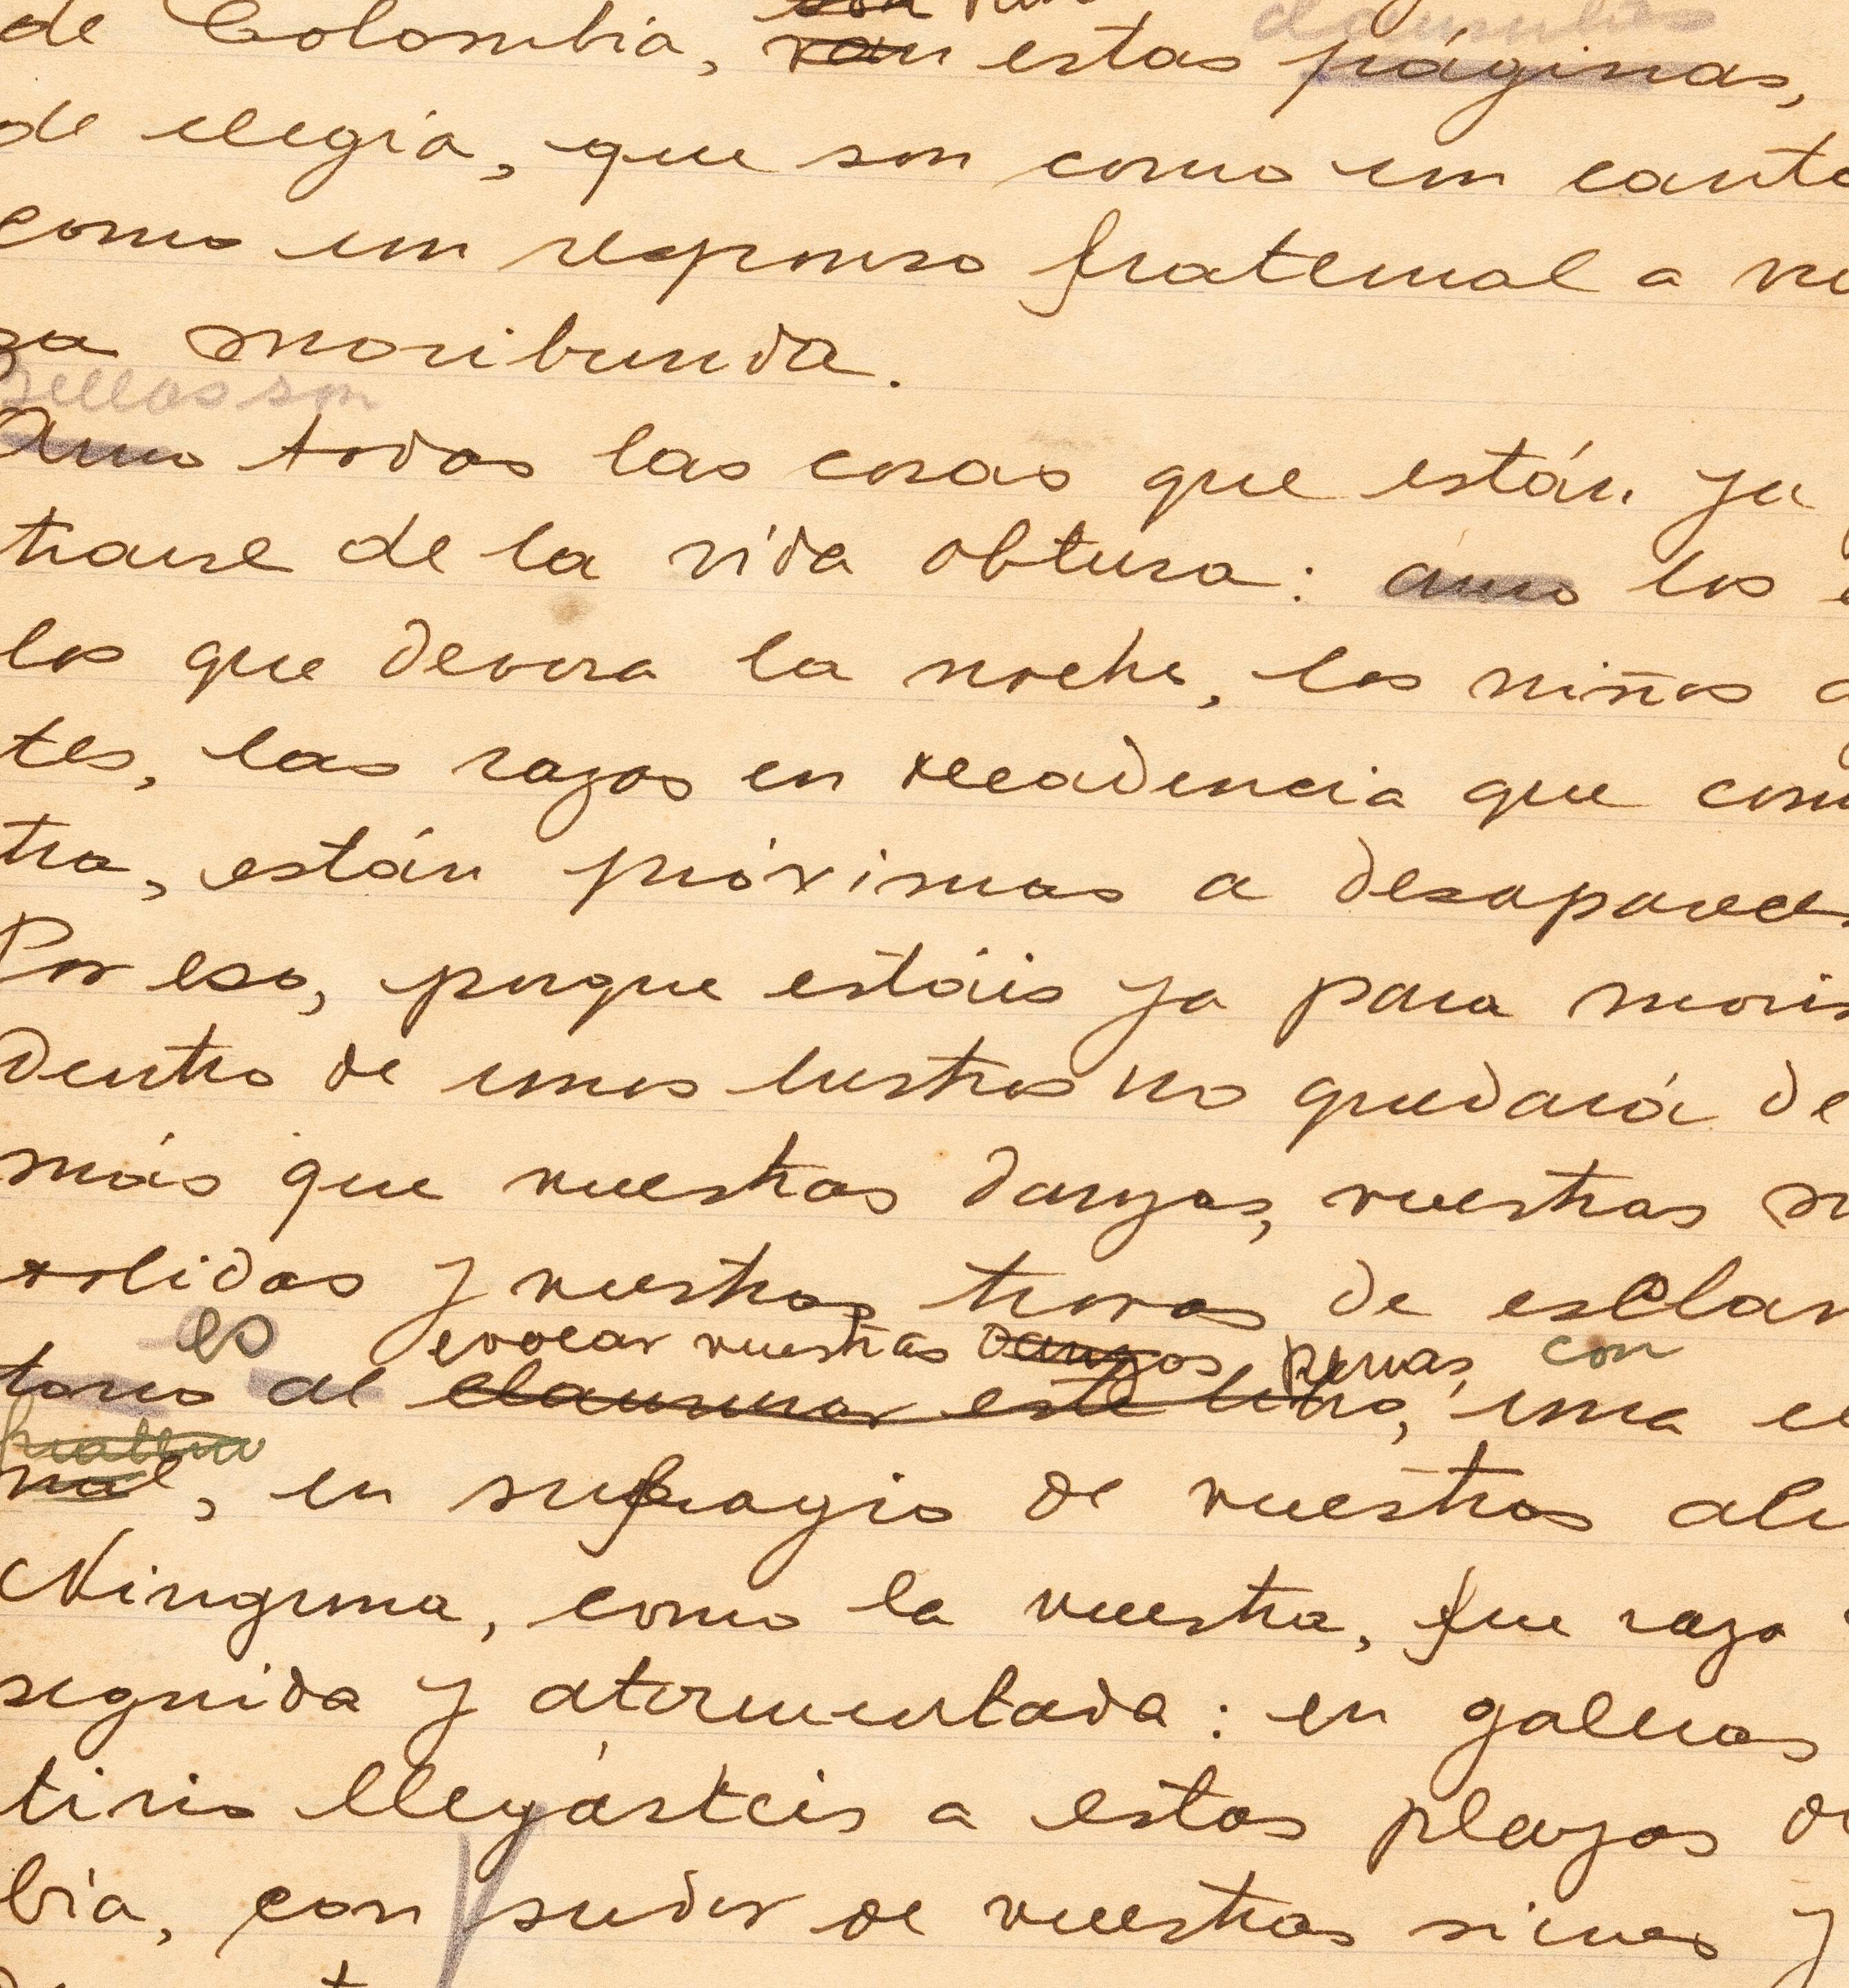 de Colombia, van estas páginas,
de elegía, que son como un canto
como un responso fraternal a
za moribunda.
bellas son
Amo todas las cosas que están ya
trarse de la vida obtusa: amo los
los que devora la noche, los niños
tes, las razas en decadencia que como
tra, están próximas a desaparecer
Por eso, porque estáis ya para morir
dentro de unos lustros no quedará de
más que vuestras danzas, vuestras
y vuestras trovas de esclav
es evocar vuestras danzas penas, con
torio al clausurar este libro, una
frater
nal, en sufragio de vuestras
Ninguna, como la vuestra, fue raza
seguida y atormentada: en galeras
tirio llegásteis a estas playas
bia, con sudor de vuestras sienes y